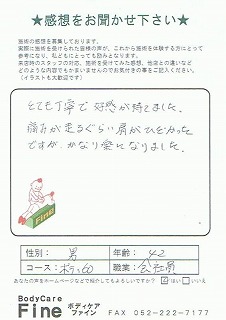 ★感想をお聞かせ下さい★
施術の感想を募集しております。
実際に施術を受けられた皆様の声が、これから施術を体験する方にとって
参考になり、私どもにとっても励みとなります。
来店時のスタッフの対応、施術を受けてみた感想、他店との違いなど
どのような内容でもかまいませんのでお気付きの事をご記入ください。
(イラストも大歓迎です)
とても丁寧で好感が持てました。
痛みが走るぐらい肩がひどかった
ですが、かなり楽になりました。
Fine
性別: 男 年齢: 42
コース: ボディ60 職業: 会社員
あなたの声をホームページなどで紹介してもよろしいですか? はい いいえ
BodyCare
Fine ボディケア
ファイン FAX 052-222-7177